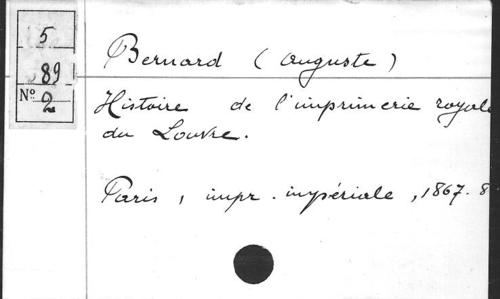 5
89
Nº 2
Bernard (Auguste)
Histoire de l'imprimerie royale
du Louvre.
Paris, impr. impériale, 1867. 8